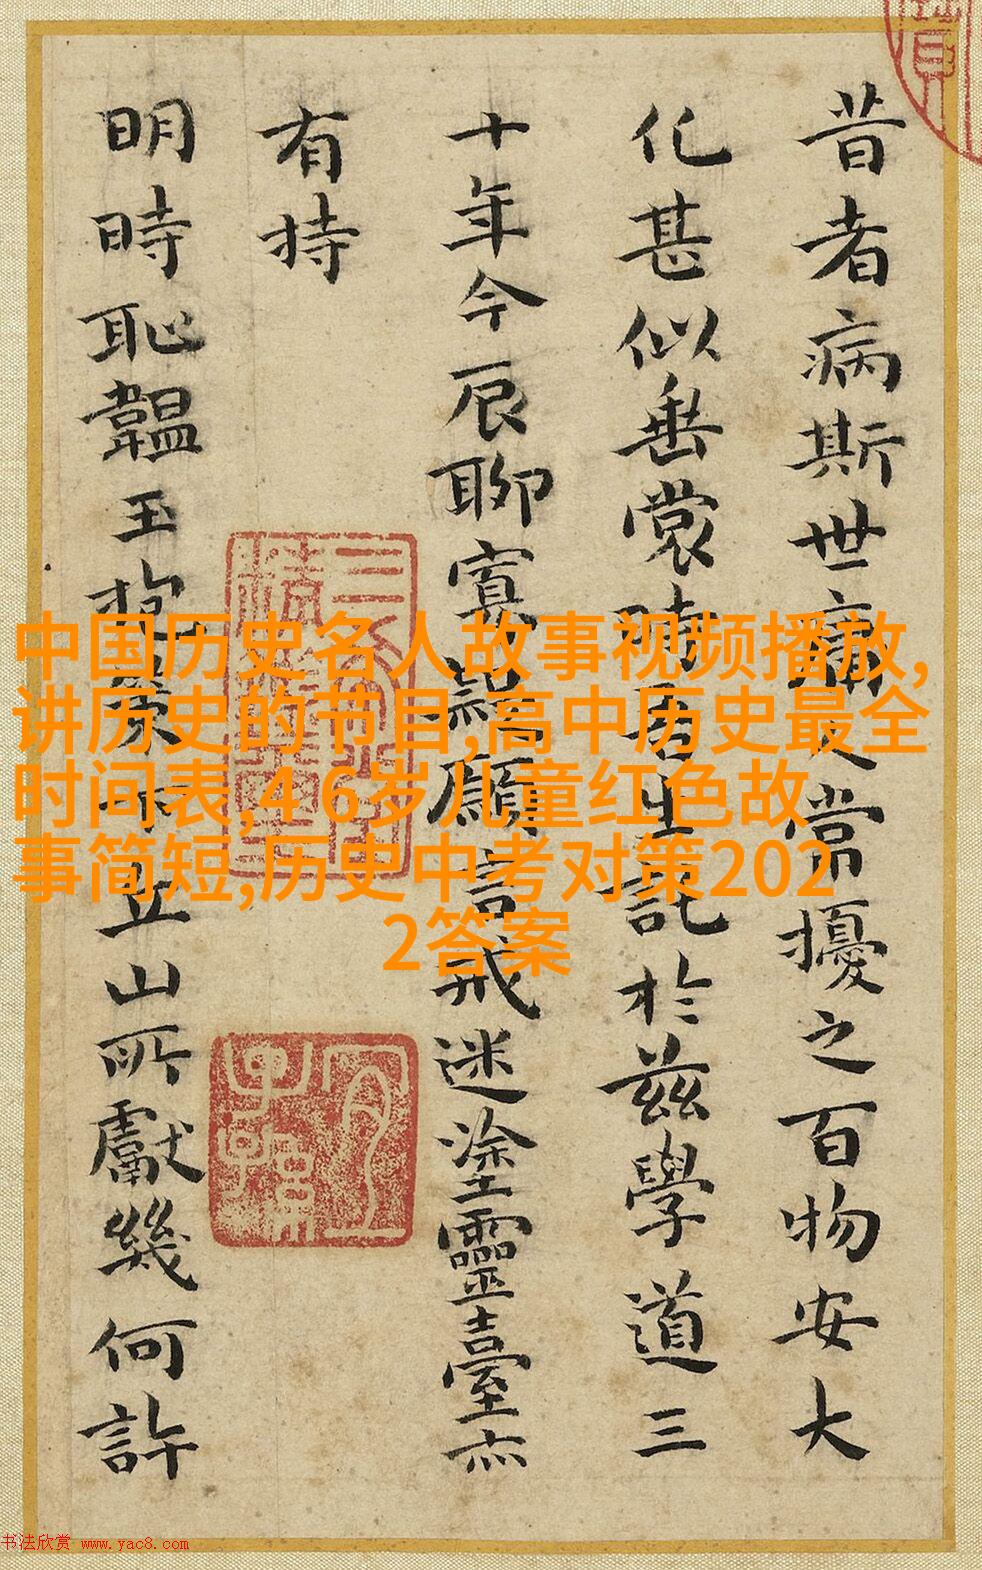 昔者病斯世庸人常擾之百物安大
化甚似垂裳時吾生託於茲學道三
十年今辰聊寡歸願言戒迷塗靈臺亦
有持
明時恥韞玉抱
立山所獻幾何許
中国历史名人故事视频播放,
讲历史的书目,高中历史最全
时间表,4 6岁儿童红色故
事简短,历史中考对策202
2答案
书法欣赏 www.yac8.com